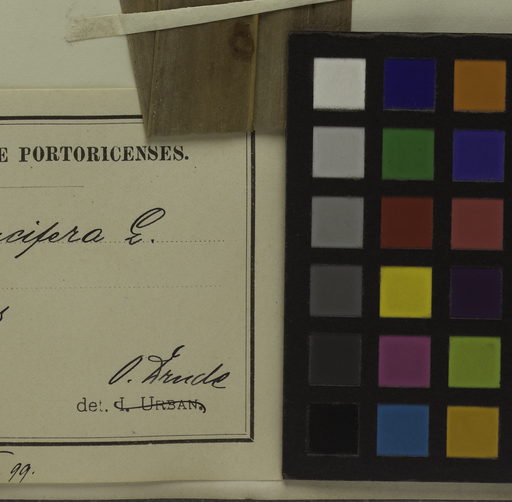 E PORTORICENSES.
cifera L.
O. Drude
det. I. URBAN.
99.